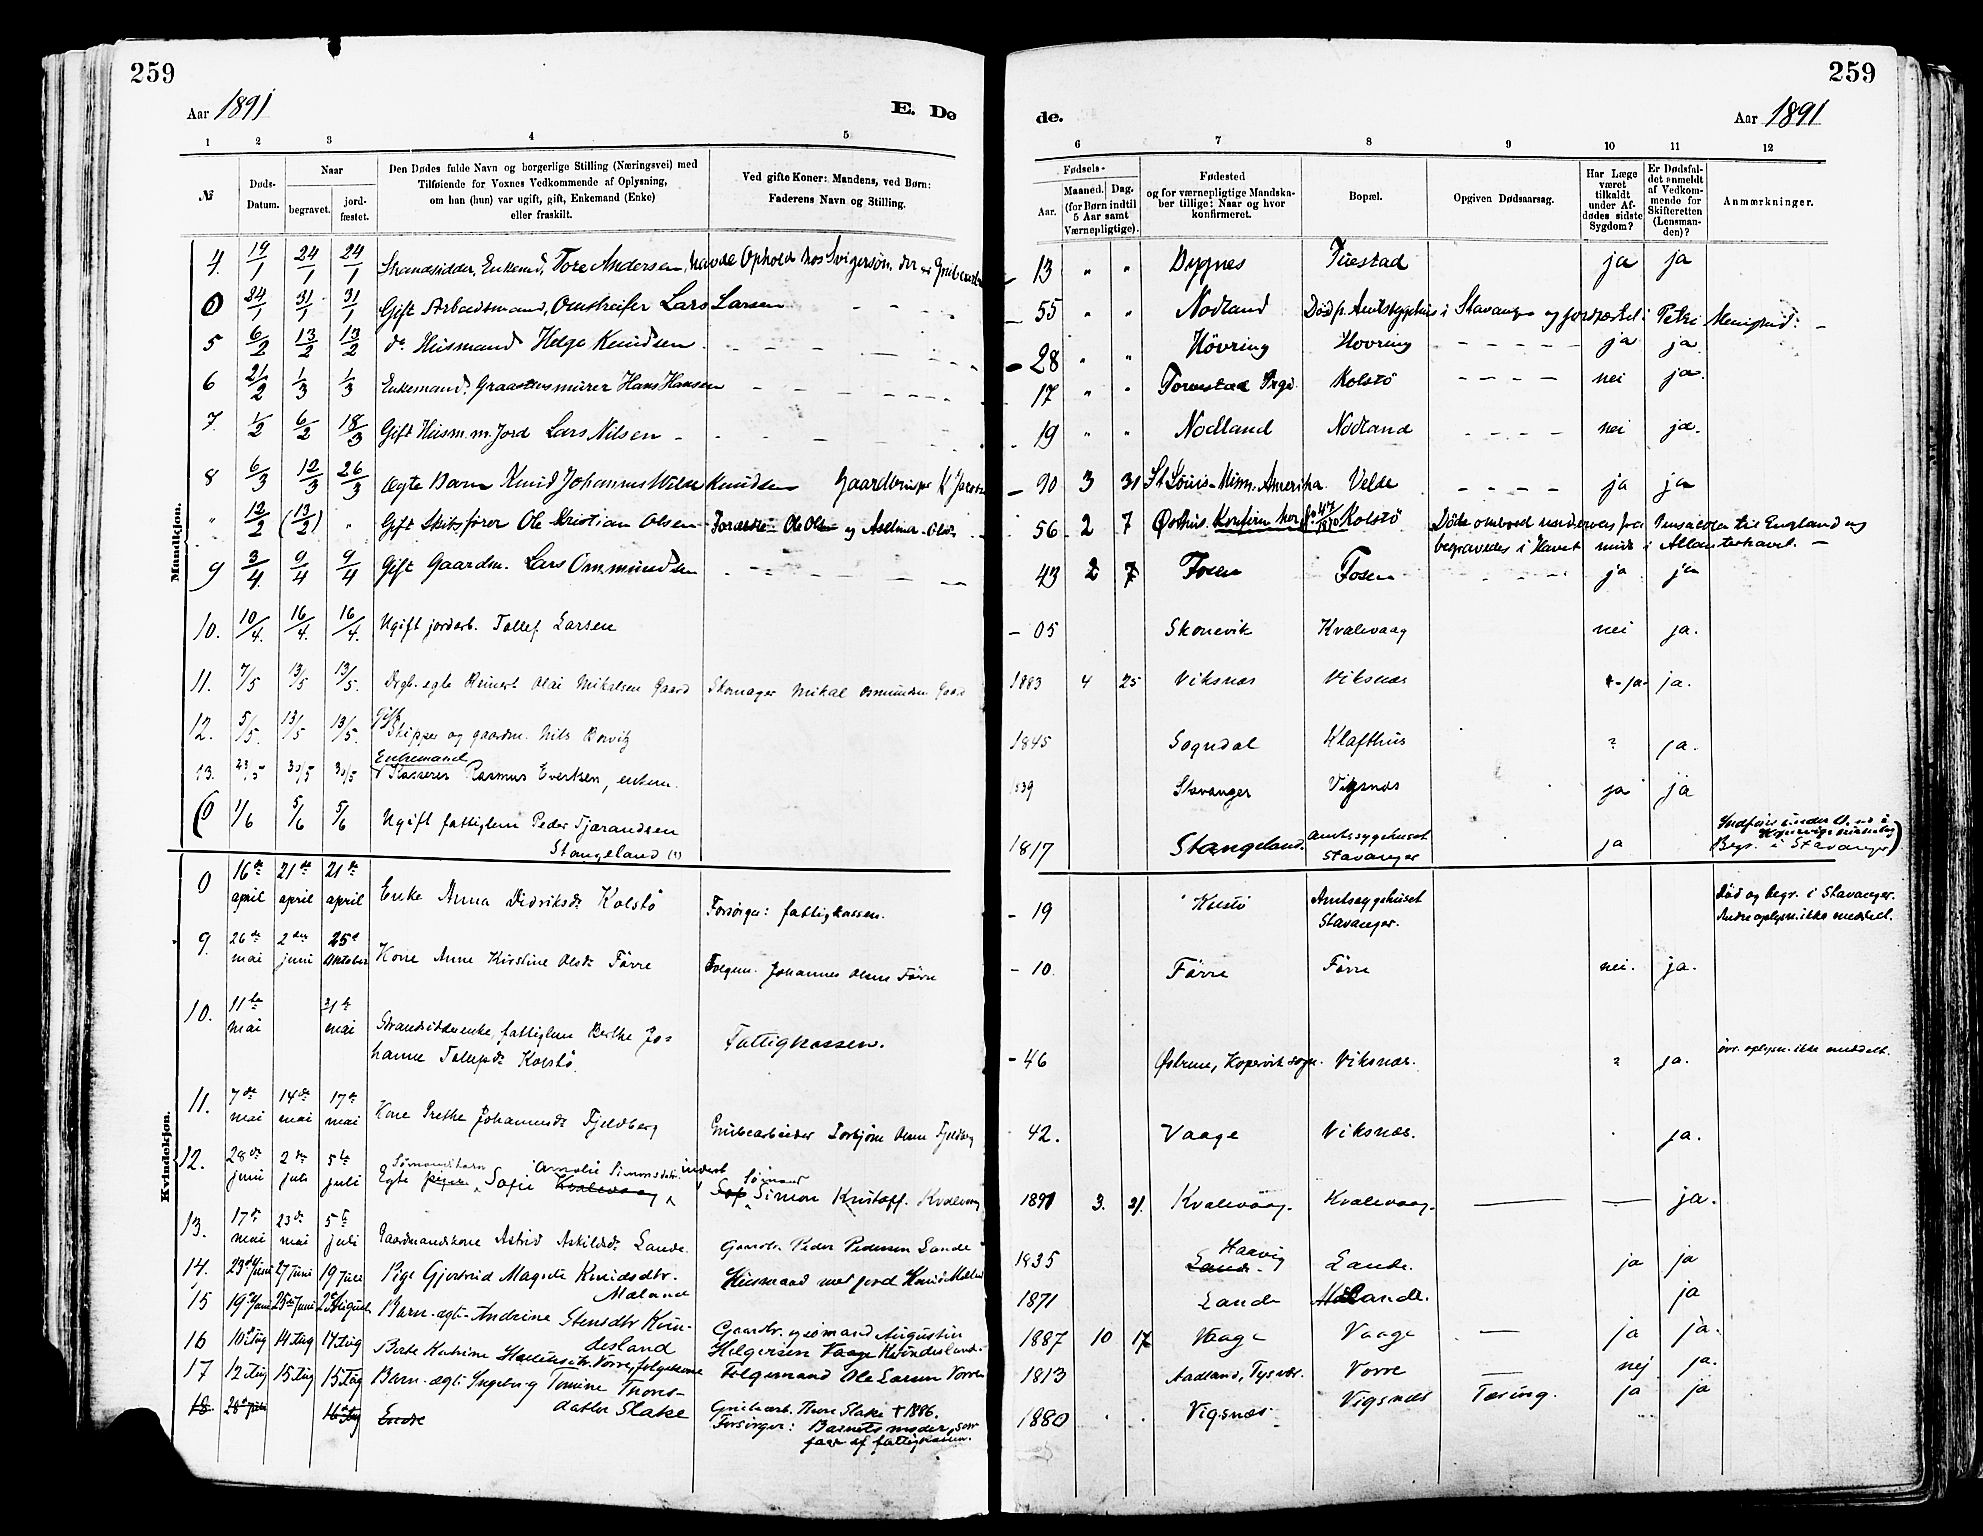 259
Aar 1891
E. Dø
1 2 3 4 5
№
Døds-Datum.
Naar
begravet.
jord-fæstet.
Den Dødes fulde Navn og borgerlige Stilling (Næringsvei) med
Tilføiende for Voxnes Vedkommende af Oplysning,
om han (hun) var ugift, gift, Enkemand (Enke)
eller fraskilt.
Ved gifte Koner: Mandens, ved Børn:
Faderens Navn og Stilling.
Mandkjøn.
4. 19/1 24/1 24/1 Strandsidder, Enkemd, Tore Andersen, havde Ophold hos Svigersøn
0 24/1 31/1 31/1 Gift Arbeidsmand, Omstreifer Lars Larsen
5 6/2 13/2 13/2 do Husmand Helge Knudsen
6 21/2 1/3 1/3 Enkemand, Graastensmurer Hans Hansen
7. 1/2 6/2 18/3 Gift Husm. m. Jord Lars Nilsen
8 6/3 12/3 26/3 Ægte Barn Knud Johannes Velde Knudsen Gaardbruger K
" 12/2 (13/2) " Gift Skibsfører Ole Kristian Olsen Forældre: Ole Olsen og
9 3/4 9/4 9/4 Gift Gaardm. Lars Ommundsen
10. 10/4. 16/4. 16/4. Ugift jordarb. Tollef Larsen
11. 7/5 13/5 13/5. Reinert Olai Mikalsen Gaard Skomager Mikal Osmundsen Gaard
12. 5/5. 13/5 13/5. Gift Skipper og gaardm. Nils
13. 23/5 30/5 30/5 Enkemand Kasserer Rasmus Evertsen, enkem.
(0 1/6 5/6 5/6 Ugift fattiglem Peder Tjærandsen
Stangeland (?)
Kvindekjøn.
0 16de april 21de april 21de april Enke Anna Didriksdr Kolstø Forsørger: fattigkassen.
9. 26de mai 2den juni 25de Oktober Kone Anne Kirstine Olsdr Førre Johannes Olsen Førre
10. 11te mai 31te mai Strandsidderenke, fattiglem Berthe Jo-
hanne Kolstø. Fattigkassen.
11. 7de mai 14de mai 17de mai Kone Grethe Johannesdr Fjeldberg Grubearbeider Torbjørn Olsen Fjeldberg
12. 28de juni 2den juli 5te juli Sømandsbarn Amalie Simonsdatter
Egte Sofie Kvalevaag Sømand Simon Kristoff. Kvalevaag
13. 17de mai 23de mai 5te juli Gaardmandskone Astrid Askildsdr Lande. Gaardbr. Peder Pedersen Lande
14. 23de Juni 27 Juni 19 Juli Pige Gjertrud Magrete Knudsdtr. Husmand med jord Knud Mæland
Mæland
15 19de Juni 25de Juni 2den August Barn-ægte Andrine Stensdtr Kvin-
desland
Gaardbr. Augustin
16 10 Aug 14 Aug 14 Aug Berte Katrine Vorre, Helgersen Vaage Kvindesland.
17 12 Aug 15 Aug 15 Aug Barn-ægte Ingeborg Tomine Thors- Ole Larsen Vorre
datter Slake Grubearb. Thore Slake † 1886.
18 16 Aug Forsørger: Barnets moder, som
faar af fattigkassen.
259
de.
Aar 1891
6 7 8 9 10 11 12
Fødsels-
Aar.
Maaned. Dag.
(for Børn indtil
5 Aar samt
Værnepligtige).
Fødested
og for værnepligtige Mandska-
ber tillige: Naar og hvor
konfirmeret.
Bopæl.
Opgiven Dødsaarsag.
Har Læge
været
tilkaldt
under Af-
dødes sidste
Sygdom?
Er Dødsfal-
det anmeldt
af Vedkom-
mende for
Skifteretten
(Lensman-
den)?
Anmærkninger.
13 " " Dygnes ja ja
55 " " Nodland Død p. Amtssygehus i Stavanger og jordfæstet i Petri Menighed.
28 " " Høvring Hovring ja ja
17 " " Kolstö nei ja.
19 " " Nodland Nodland nei ja.
90 3 31 St Louis - Minn. Amerika Velde ja ja
56 2 7 Kolstö Døde ombord underveis fra Pensacola til England og
begravedes i Havet i Atlanterhavet.
43 2 7 Fosen Fosen ja ja
05 Skonevik Kvalevaag nei ja.
1883 4 25 Viksnæs Viksnæs ja ja.
1845 Sogndal Klafthus ? ja.
1839 Stavanger Vigsnæs ja ja
1817 Stangeland. Amtssygehuset
Stavanger ja
Begr. i Stavanger)
19 Amtssygehuset
Stavanger. Død og begr. i Stavanger.
Andre oplysn. ikke meddelt.
10. Førre Førre nei. ja.
46 Østreme, Kopervik sogn. Viksnæs. ? ja. øvr. oplysn. ikke meddelt.
42. Vaage Viksnæs. ja.
1891 3. 21. Kvalevaag. Kvalevaag. ja.
1835 Haavig Lande. ja ja
1871 Lande ja
1887 10 17 Vaage Vaage ja ja.
1813 Aadland, Tysvær. Vorre nej ja.
1880 Vigsnæs Vigsnæs Tæring. ja ja